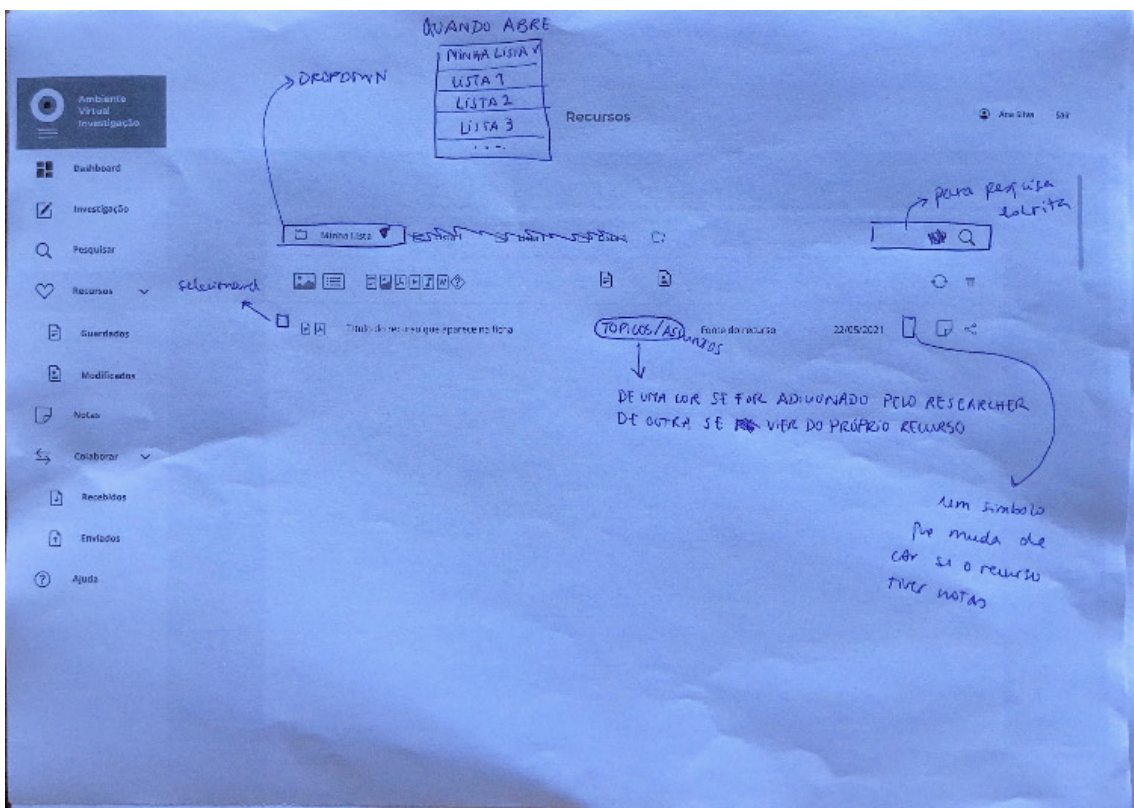 QUANDO ABRE
MINHA LISTA
LISTA 1
LISTA 2
LISTA 3
. . .
DROPDOWN
Ambiente
Virtual
Investigação
Recursos
Ana Silva Sair
Dashboard
Investigação
Pesquisar
Recursos
Guardados
Modificados
Notas
Colaborar
Recebidos
Enviados
Ajuda
para pesquisa
escrita
Minha Lista
selecionável
Título do recurso que aparece na ficha
TOPICOS/ASSUNTOS
Fonte do recurso
22/05/2021
DE UMA COR SE FOR ADICIONADO PELO RESEARCHER
DE OUTRA SE VIER DO PRÓPRIO RECURSO
um símbolo
que muda de
cor se o recurso
tiver notas